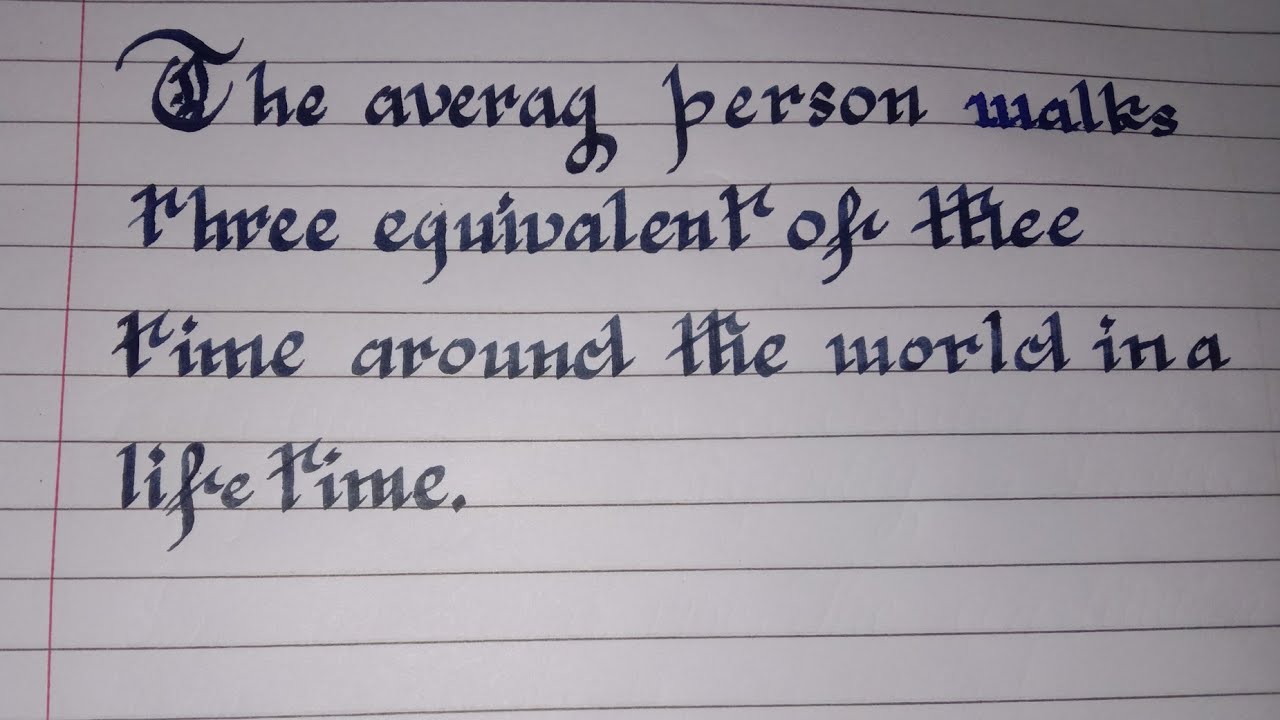 The averag person walks
three equivalent of thee
time around the world in a
life time.